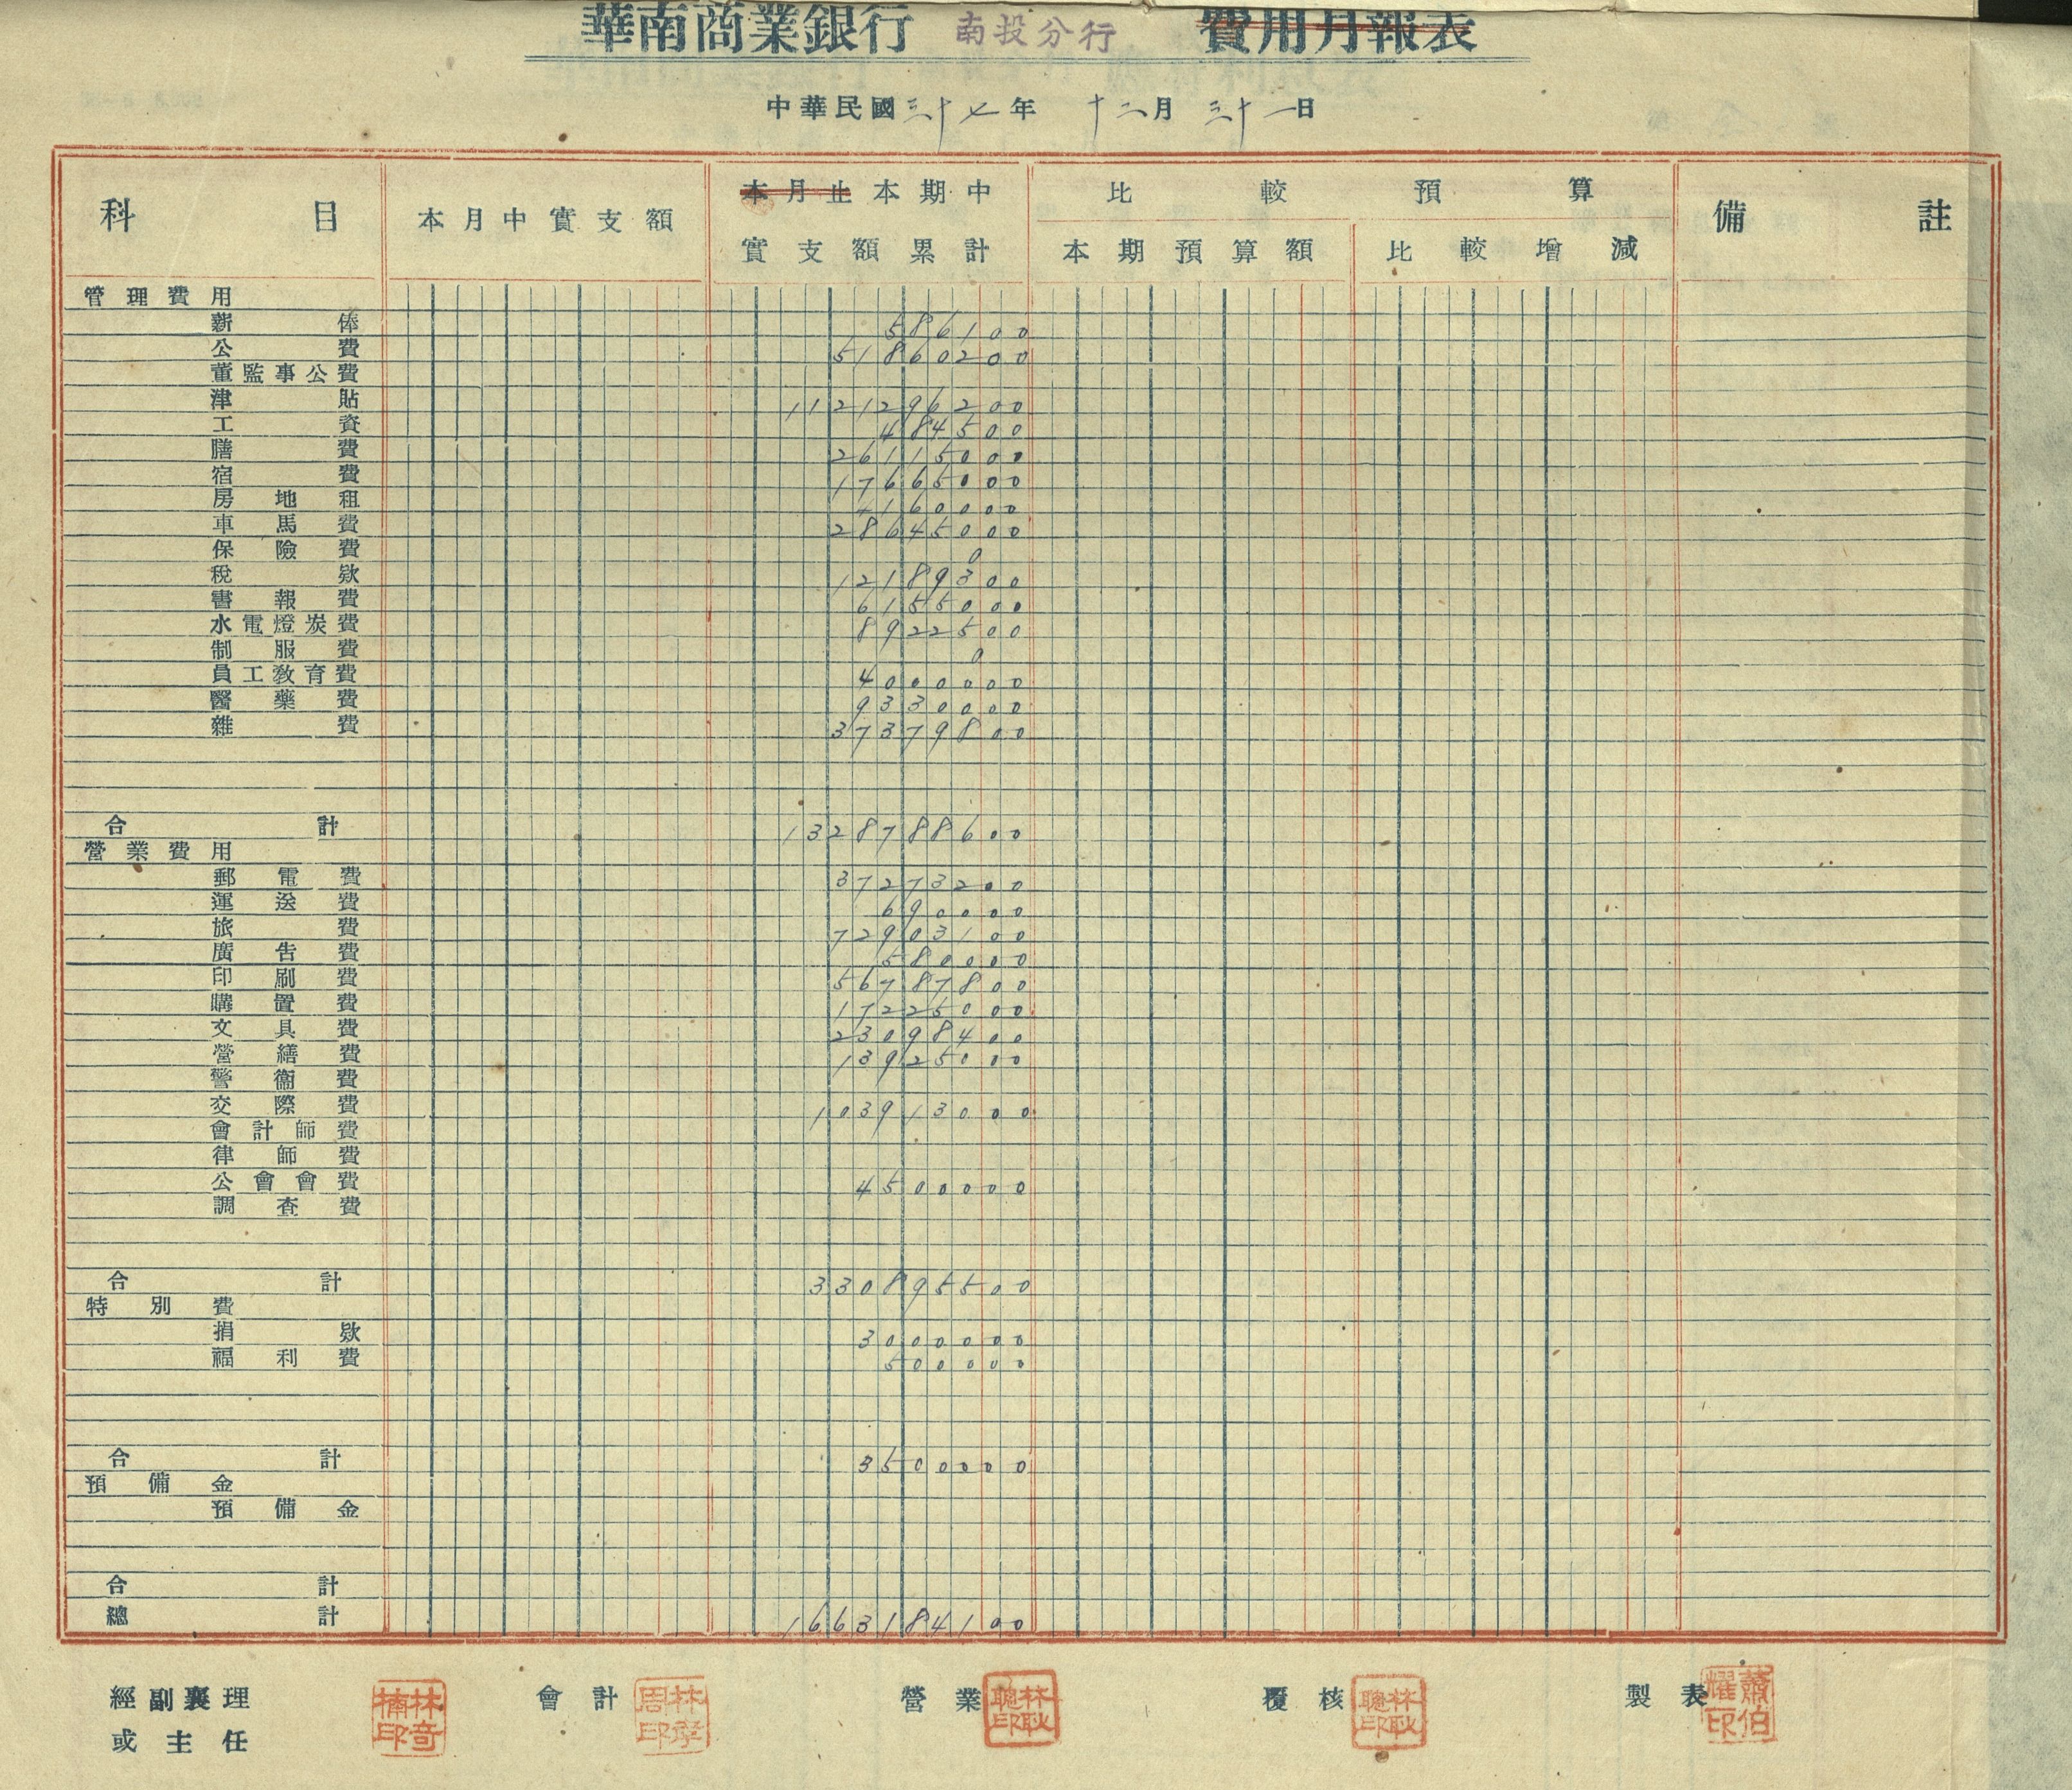 華南商業銀行 南投分行 費用月報表
中華民國三十七年 十二月 三十一日
科目 本月中實支額 本月止本期中實支額累計 比較預算 本期預算額 比較增減 備註
管理費用
薪俸 586100
公費 51860200
董監事公費
津貼 1121296200
工資 484500
膳費 26115000
宿費 17665000
房地租 4160000
車馬費 28645000
保險費 0
稅欵 12189300
書報費 6155000
水電燈炭費 8922500
制服費 0
員工教育費 4000000
醫藥費 9330000
雜費 37379800
合計 1328788600
營業費用
郵電費 37273200
運送費 690000
旅費 72903100
廣告費 580000
印刷費 56787800
購置費 17225000
文具費 23098400
營繕費 13925000
警衞費
交際費 103913000
會計師費
律師費
公會會費 4500000
調查費
合計 330895500
特別費
捐欵 3000000
福利費 500000
合計 3500000
預備金
預備金
合計
總計 1663184100
經副襄理或主任 林奇楠印 會計 營業 林耿聰印 覆核 林耿聰印 製表 蕭伯耀印